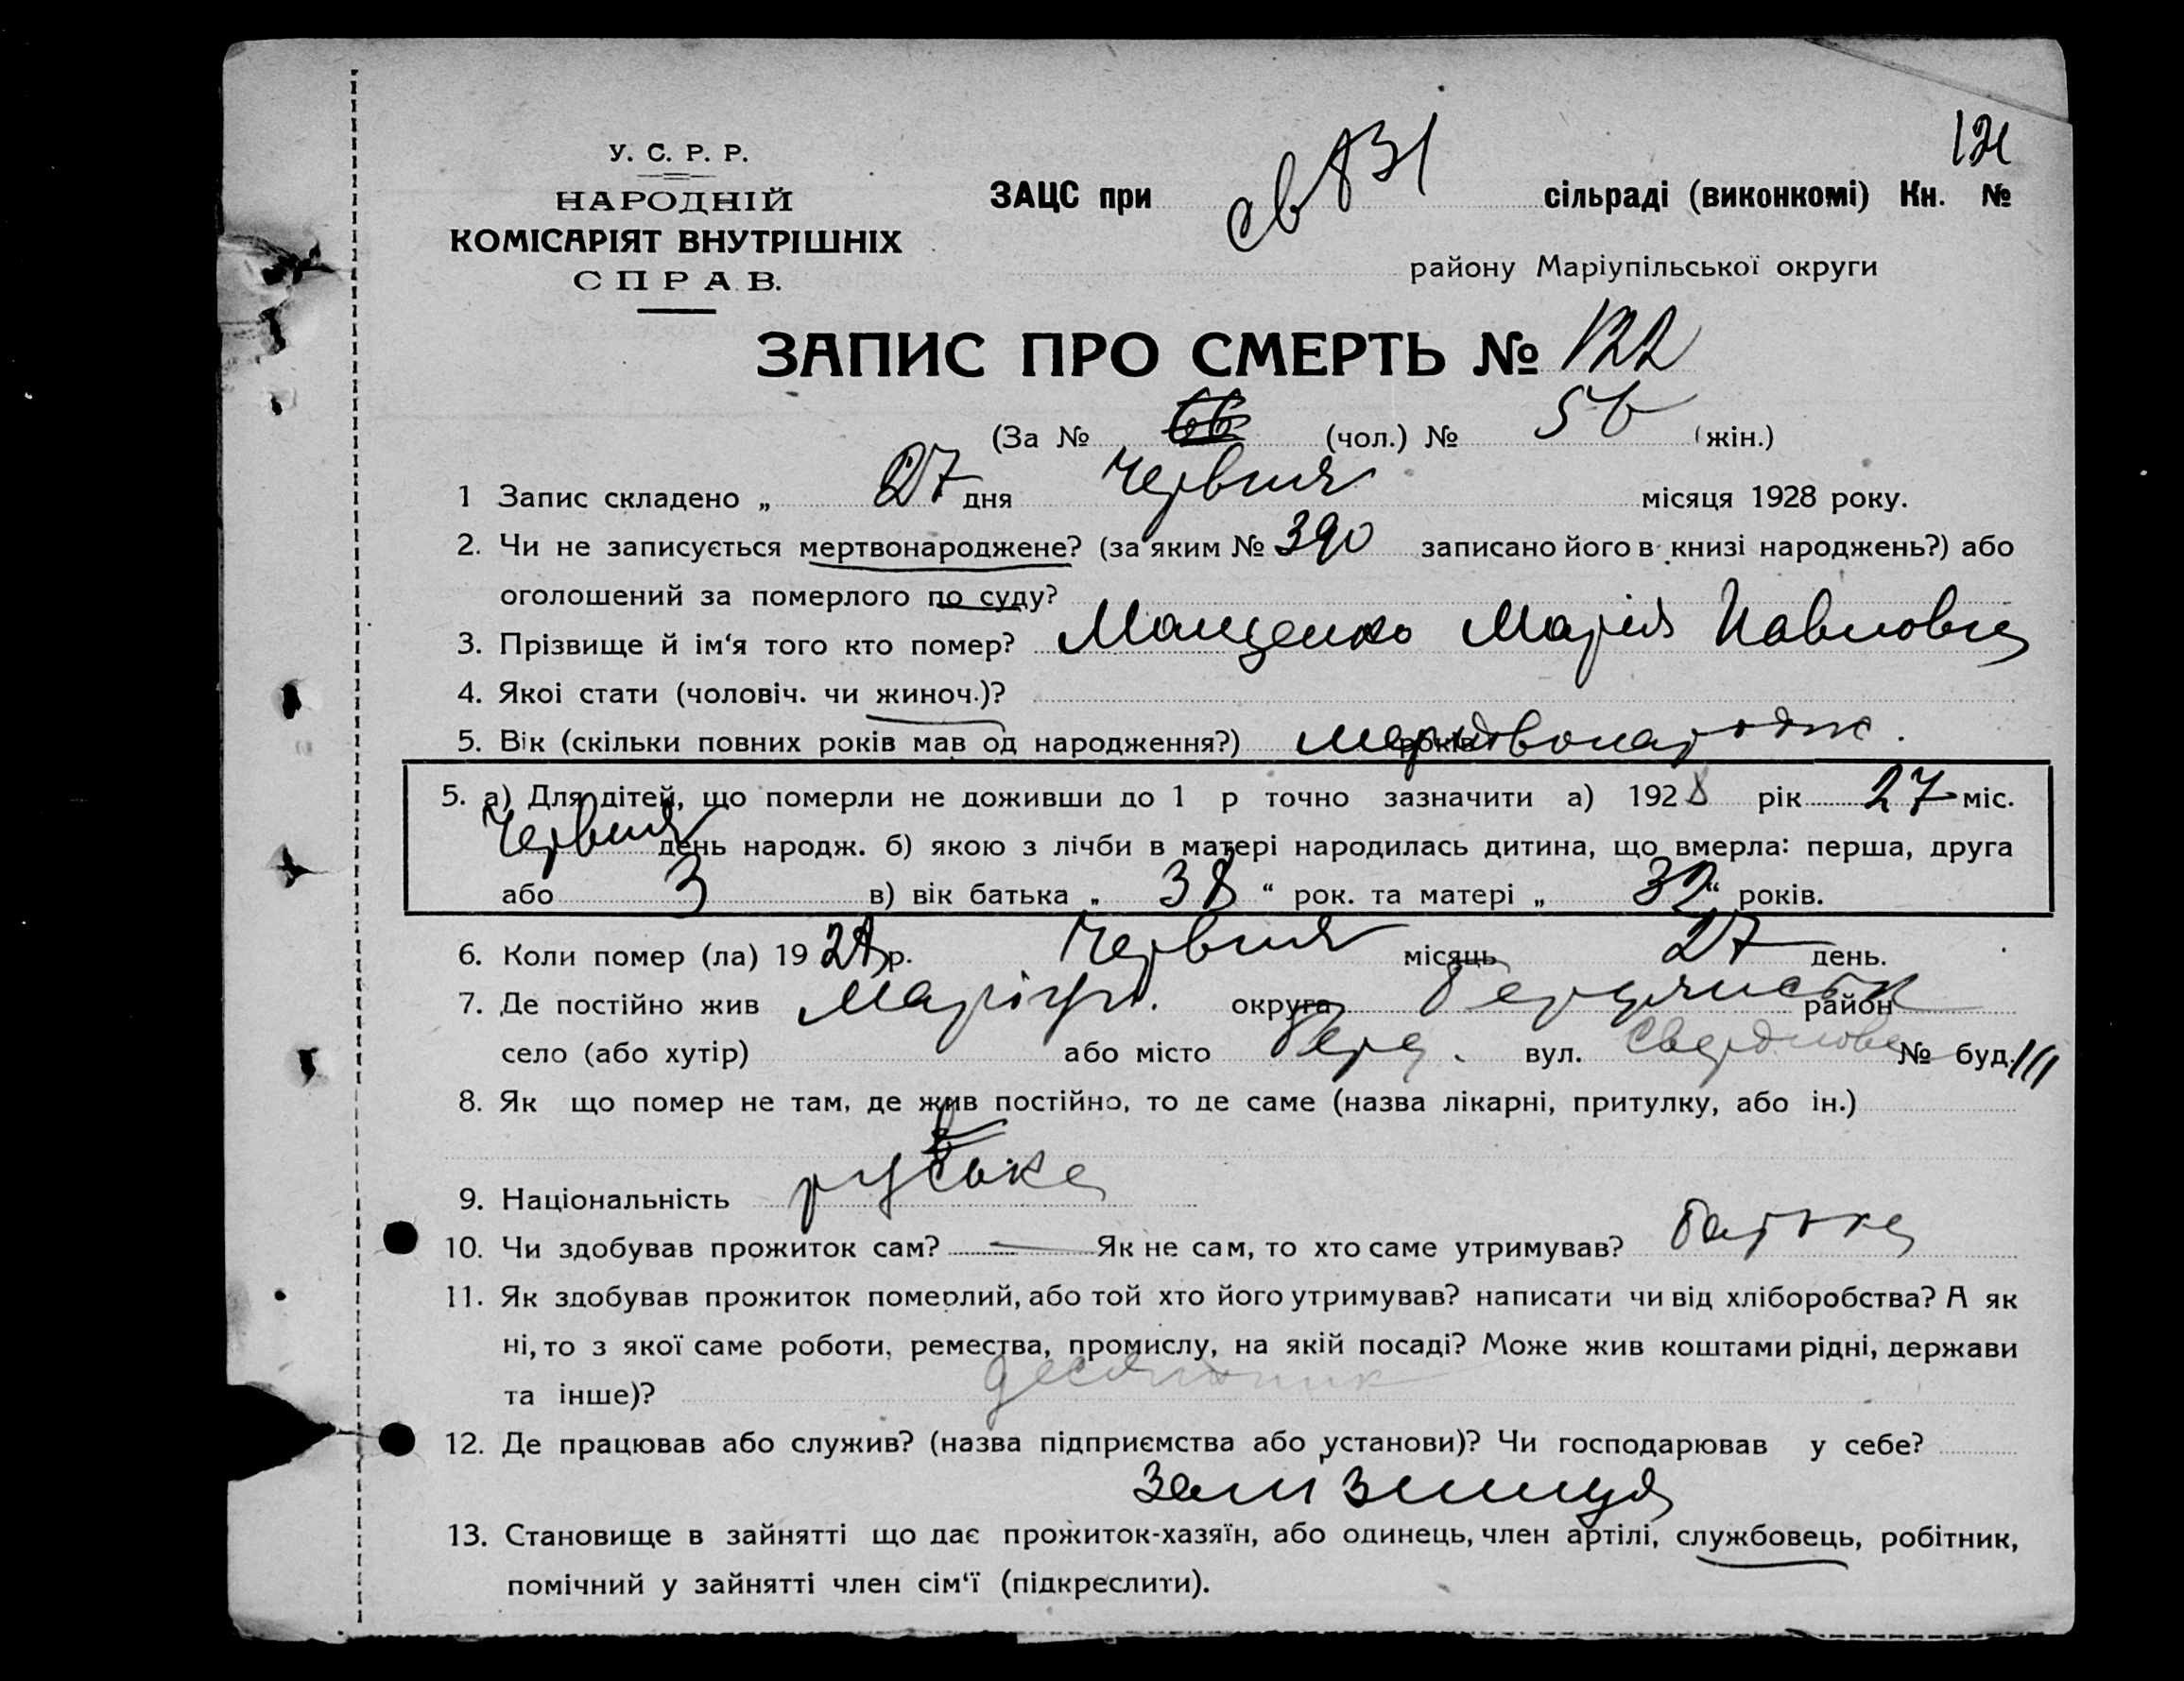 121
У. С. Р. Р.
НАРОДНІЙ
КОМІСАРІЯТ ВНУТРІШНІХ
СПРАВ.
ЗАЦС при сільраді (виконкомі) Кн. №
району Маріупільської округи
ЗАПИС ПРО СМЕРТЬ № 122
(За № 66 (чол.) № 56 (жін.)
1 Запис складено „ 27 дня Червня місяця 1928 року.
2. Чи не записується мертвонароджене? (за яким № 390 записано його в книзі народжень?) або
оголошений за померлого по суду?
3. Прізвище й ім‘я того кто помер? Мащенко Марія Павловна
4. Якоі стати (чоловіч. чи жиноч.)?
5. Вік (скільки повних років мав од народження?) мертвонародж. років
5. а) Для дітей, що померли не доживши до 1 р точно зазначити а) 1928 рік 27 міс.
Червня день народж. б) якою з лічби в матері народилась дитина, що вмерла: перша, друга
або 3 в) вік батька „ 38 “ рок. та матері „ 32 “ років.
6. Коли помер (ла) 1928 р. Червня місяць 27 день.
7. Де постійно жив Маріуп. округа Бердянськ район
село (або хутір) або місто Берд. вул. Свердлова № буд. 111
8. Як що помер не там, де жив постійно, то де саме (назва лікарні, притулку, або ін.)
9. Національність руська
10. Чи здобував прожиток сам? — Як не сам, то хто саме утримував? батько
11. Як здобував прожиток померлий, або той хто його утримував? написати чи від хліборобства? А як
ні, то з якої саме роботи, ремества, промислу, на якій посаді? Може жив коштами рідні, держави
та інше)? десятник
12. Де працював або служив? (назва підприємства або установи)? Чи господарював у себе?
Залізниця
13. Становище в зайнятті що дає прожиток-хазяїн, або одинець, член артілі, службовець, робітник,
помічний у зайнятті член сім‘ї (підкреслити).